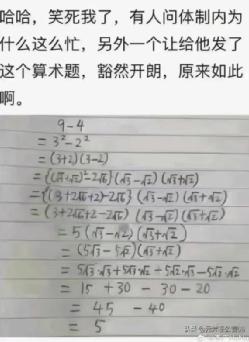 哈哈，笑死我了，有人问体制内为
什么这么忙，另外一个让给他发了
这个算术题，豁然开朗，原来如此
啊。
9-4
=3²-2²
=(3+2)(3-2)
={(√3+√2)²-2√6}(√3-√2)(√3+√2)
={(3+2√6+2)-2√6}(√3-√2)(√3+√2)
=(3+2√6+2-2√6)(√3-√2)(√3+√2)
=5(√3-√2)(√3+√2)
=(5√3-5√2)(√3+√2)
=5√3·√3+5√3·√2-5√2·√3-5√2·√2
=15+30-30-20
=45-40
=5